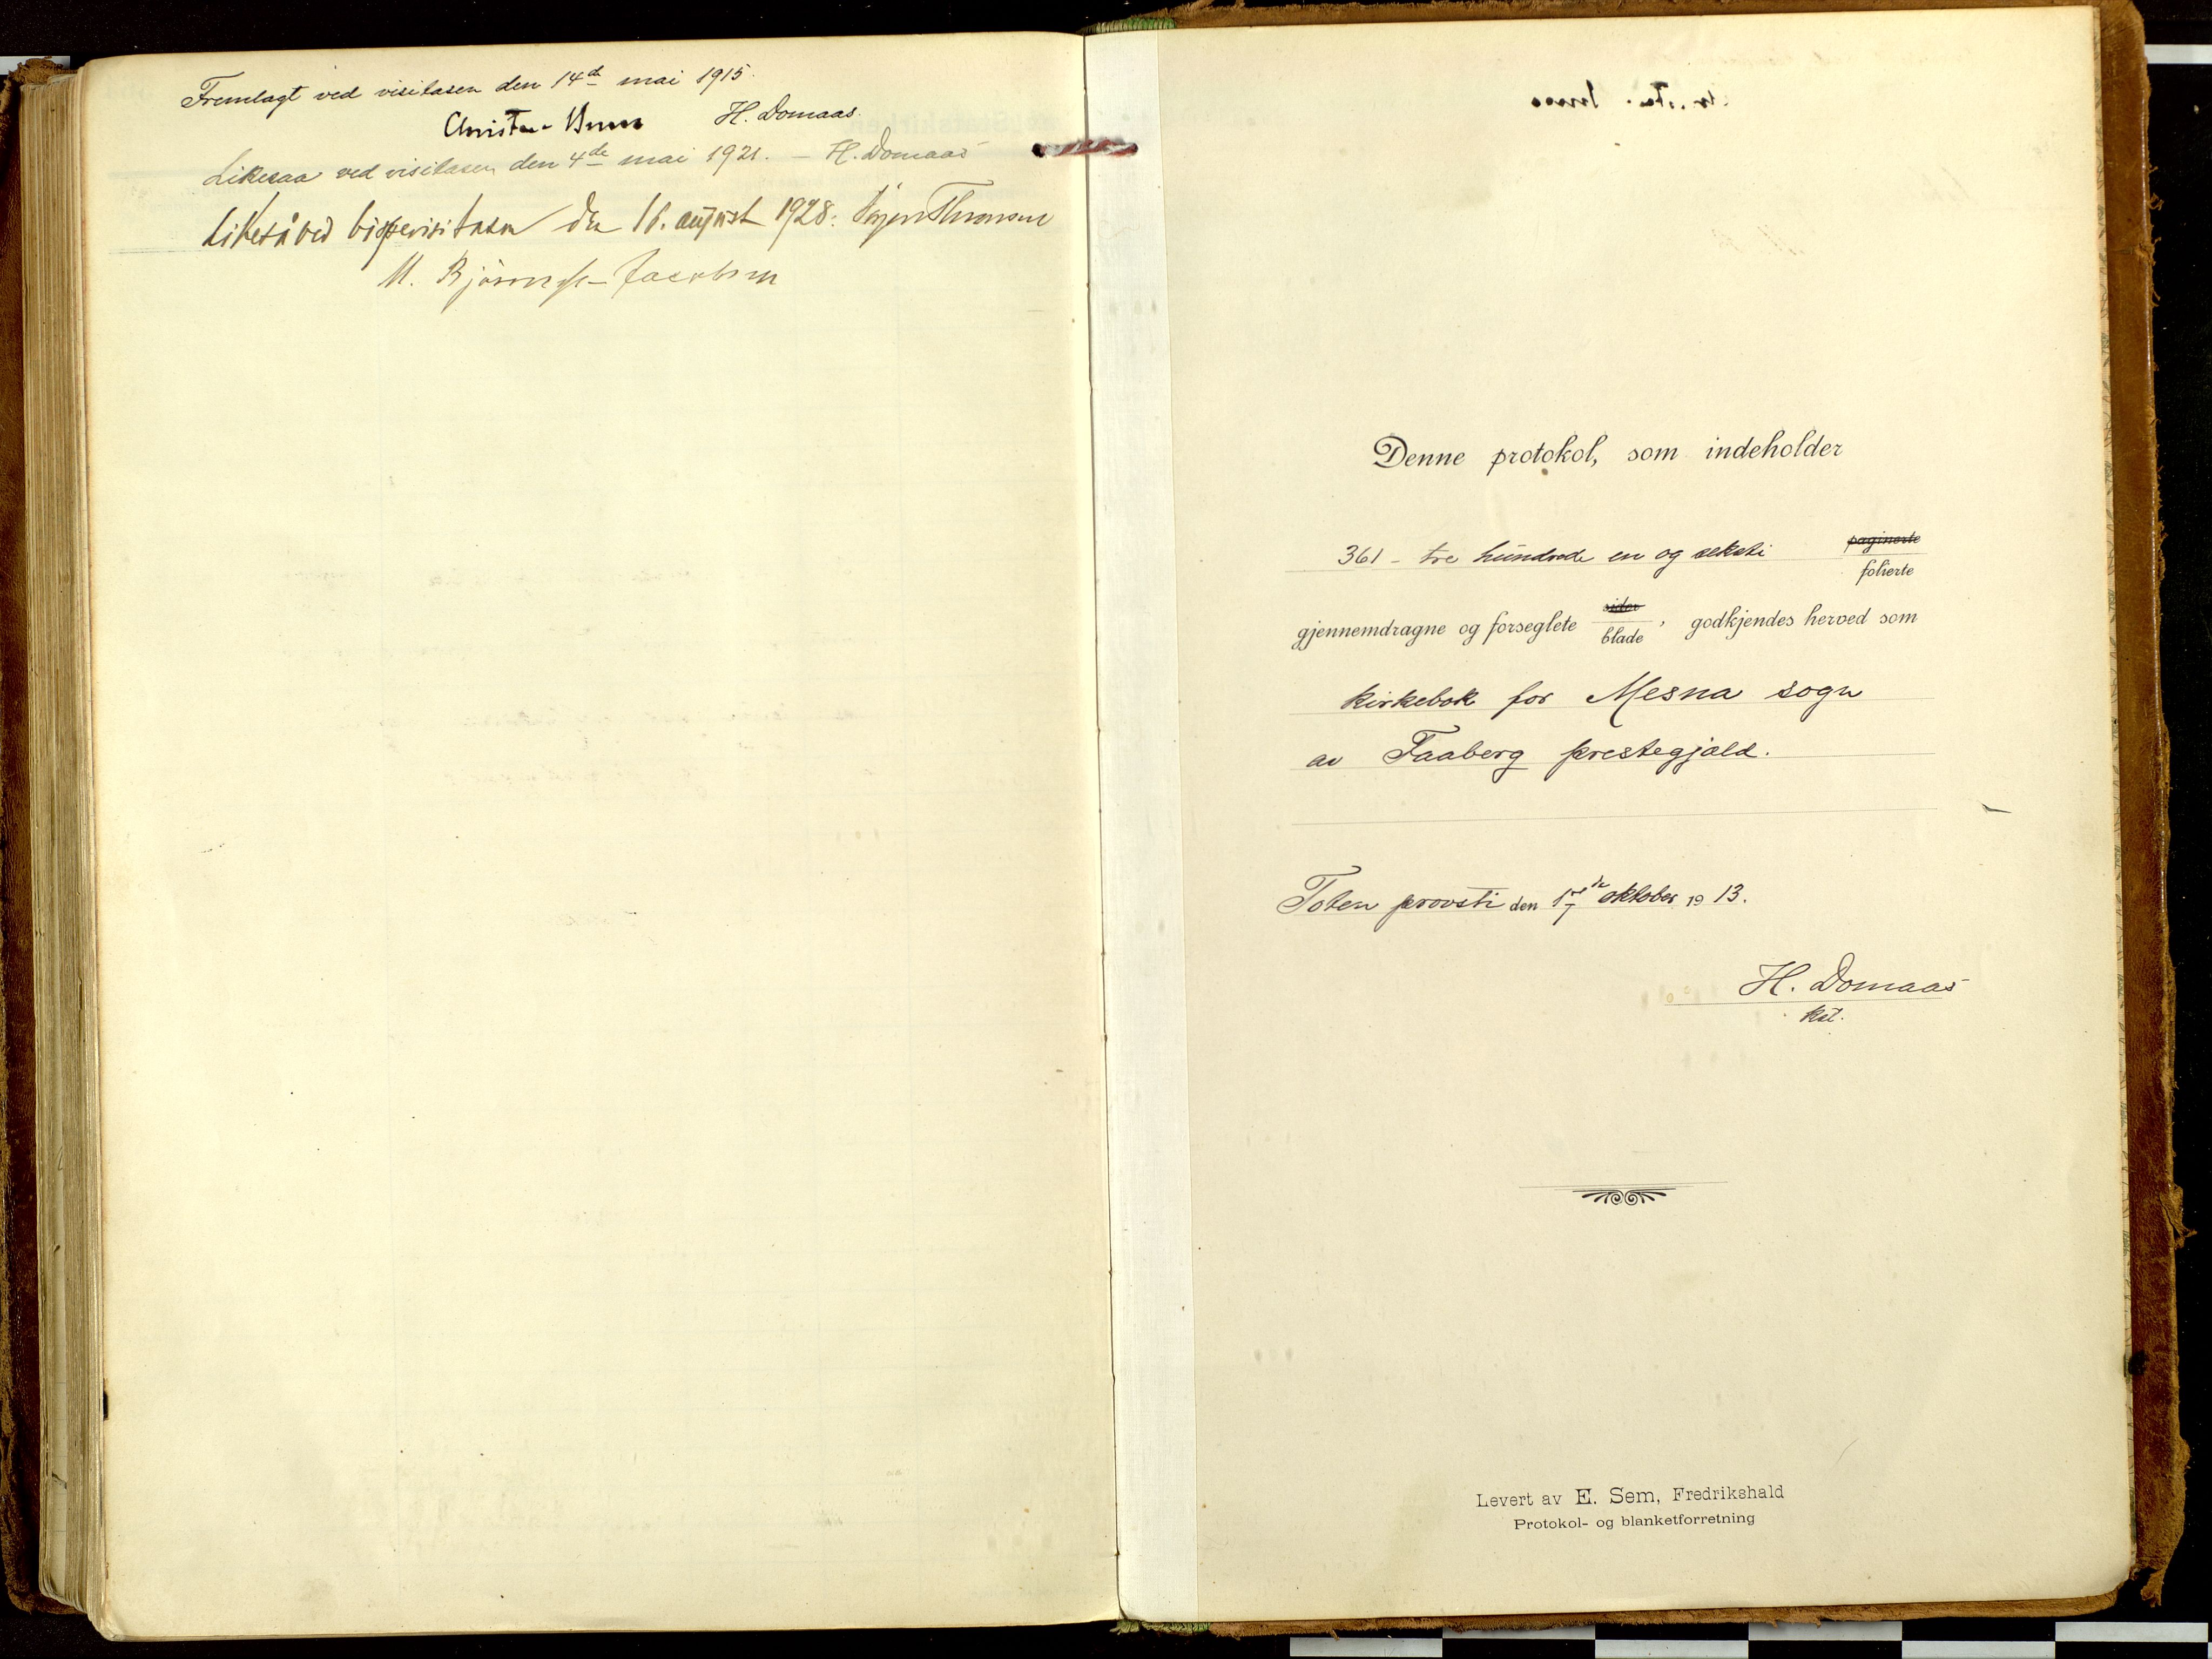 Fremlagt ved visitasen den 14de mai 1915.
H. Domaas.
Likesaa ved visitasen den 4de mai 1921. – H. Domaas
Likeså ved bispevisitasen den 16. august 1928.
Denne protokol, som indeholder
361 – tre hundrede en og seksti paginerte
folierte
gjennemdragne og forseglete sider
blade, godkjendes herved som
kirkebok for Mesna sogn
av Faaberg prestegjæld.
Toten provsti den oktober 1913.
H. Domaas
kst.
Levert av E. Sem, Fredrikshald
Protokol- og blanketforretning